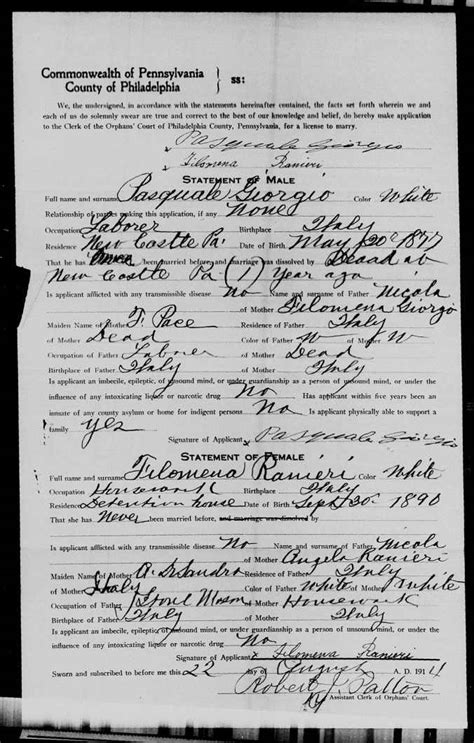 Commonwealth of Pennsylvania
County of Philadelphia } ss:
We, the undersigned, in accordance with the statements hereinafter contained, the facts set forth wherein we and
each of us do solemnly swear are true and correct to the best of our knowledge and belief, do hereby make application
to the Clerk of the Orphans' Court of Philadelphia County, Pennsylvania, for a license to marry.
Pasquale Giorgio
Filomena Ranieri
STATEMENT OF MALE
Full name and surname Pasquale Giorgio Color White
Relationship of parties making this application, if any None
Occupation Laborer Birthplace Italy
Residence New Castle Pa. Date of Birth May 20 1877
That he has been married before and marriage was dissolved by Dead at
New Castle Pa (1) Year ago
Is applicant afflicted with any transmissible disease No Name and surname of Father Nicola
of Mother Filomena Giorgio
Maiden Name of Mother F. Pace Residence of Father Italy
of Mother Dead Color of Father W of Mother W
Occupation of Father Laborer of Mother Dead
Birthplace of Father Italy of Mother Italy
Is applicant an imbecile, epileptic, of unsound mind, or under guardianship as a person of unsound mind, or under the
influence of any intoxicating liquor or narcotic drug No Has applicant within five years been an
inmate of any county asylum or home for indigent persons No Is applicant physically able to support a
family yes
Signature of Applicant Pasquale Giorgio
STATEMENT OF FEMALE
Full name and surname Filomena Ranieri Color White
Occupation Housework Birthplace Italy
Residence Detention House Date of Birth Sept 30 1890
That she has Never been married before, and marriage was dissolved by
Is applicant afflicted with any transmissible disease No Name and surname of Father Nicola
of Mother Angela Ranieri
Maiden Name of Mother Residence of Father Italy
of Mother Italy Color of Father White of Mother White
Occupation of Father Stone Mason of Mother Housework
Birthplace of Father Italy of Mother Italy
Is applicant an imbecile, epileptic, of unsound mind, or under guardianship as a person of unsound mind, or under the
influence of any intoxicating liquor or narcotic drug No
Signature of Applicant x Filomena Ranieri
Sworn and subscribed to before me this 22 day of August A. D. 1911
Robert J. Patton
Assistant Clerk of Orphans' Court.